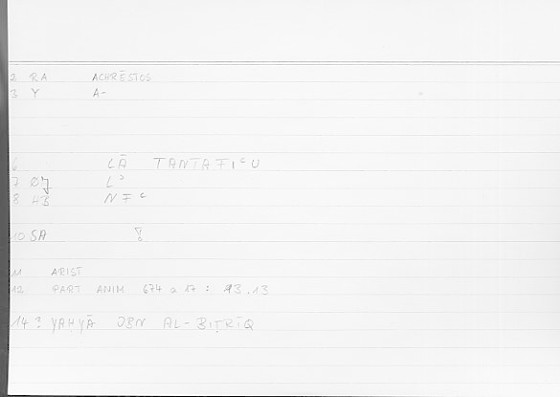 2 RA ACHRĒSTOS
3 Y A-
6 LĀ TANTAFIʿU
7 Lʾ
8 NFʿ
10 SA
11 ARIST
12 PART ANIM 674 a 17 : 93.13
14 : YAḤYĀ IBN AL-BIṬRĪQ